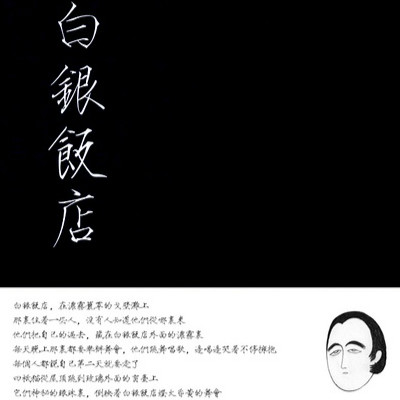 白銀飯店
白銀飯店，在濃霧籠罩的戈壁灘上
那裏住着一些人，沒有人知道他們從哪裏來
他們把自己的過去，藏在白銀飯店外面的濃霧裏
每天晚上那裏都要舉辦舞會，他們跳舞唱歌，邊唱邊哭着不停擁抱
每個人都說自己第二天就要走了
四隻貓從屋頂跳到玻璃外面的窗臺上
它們神秘的眼睛裏，倒映着白銀飯店燈火昏黃的舞會